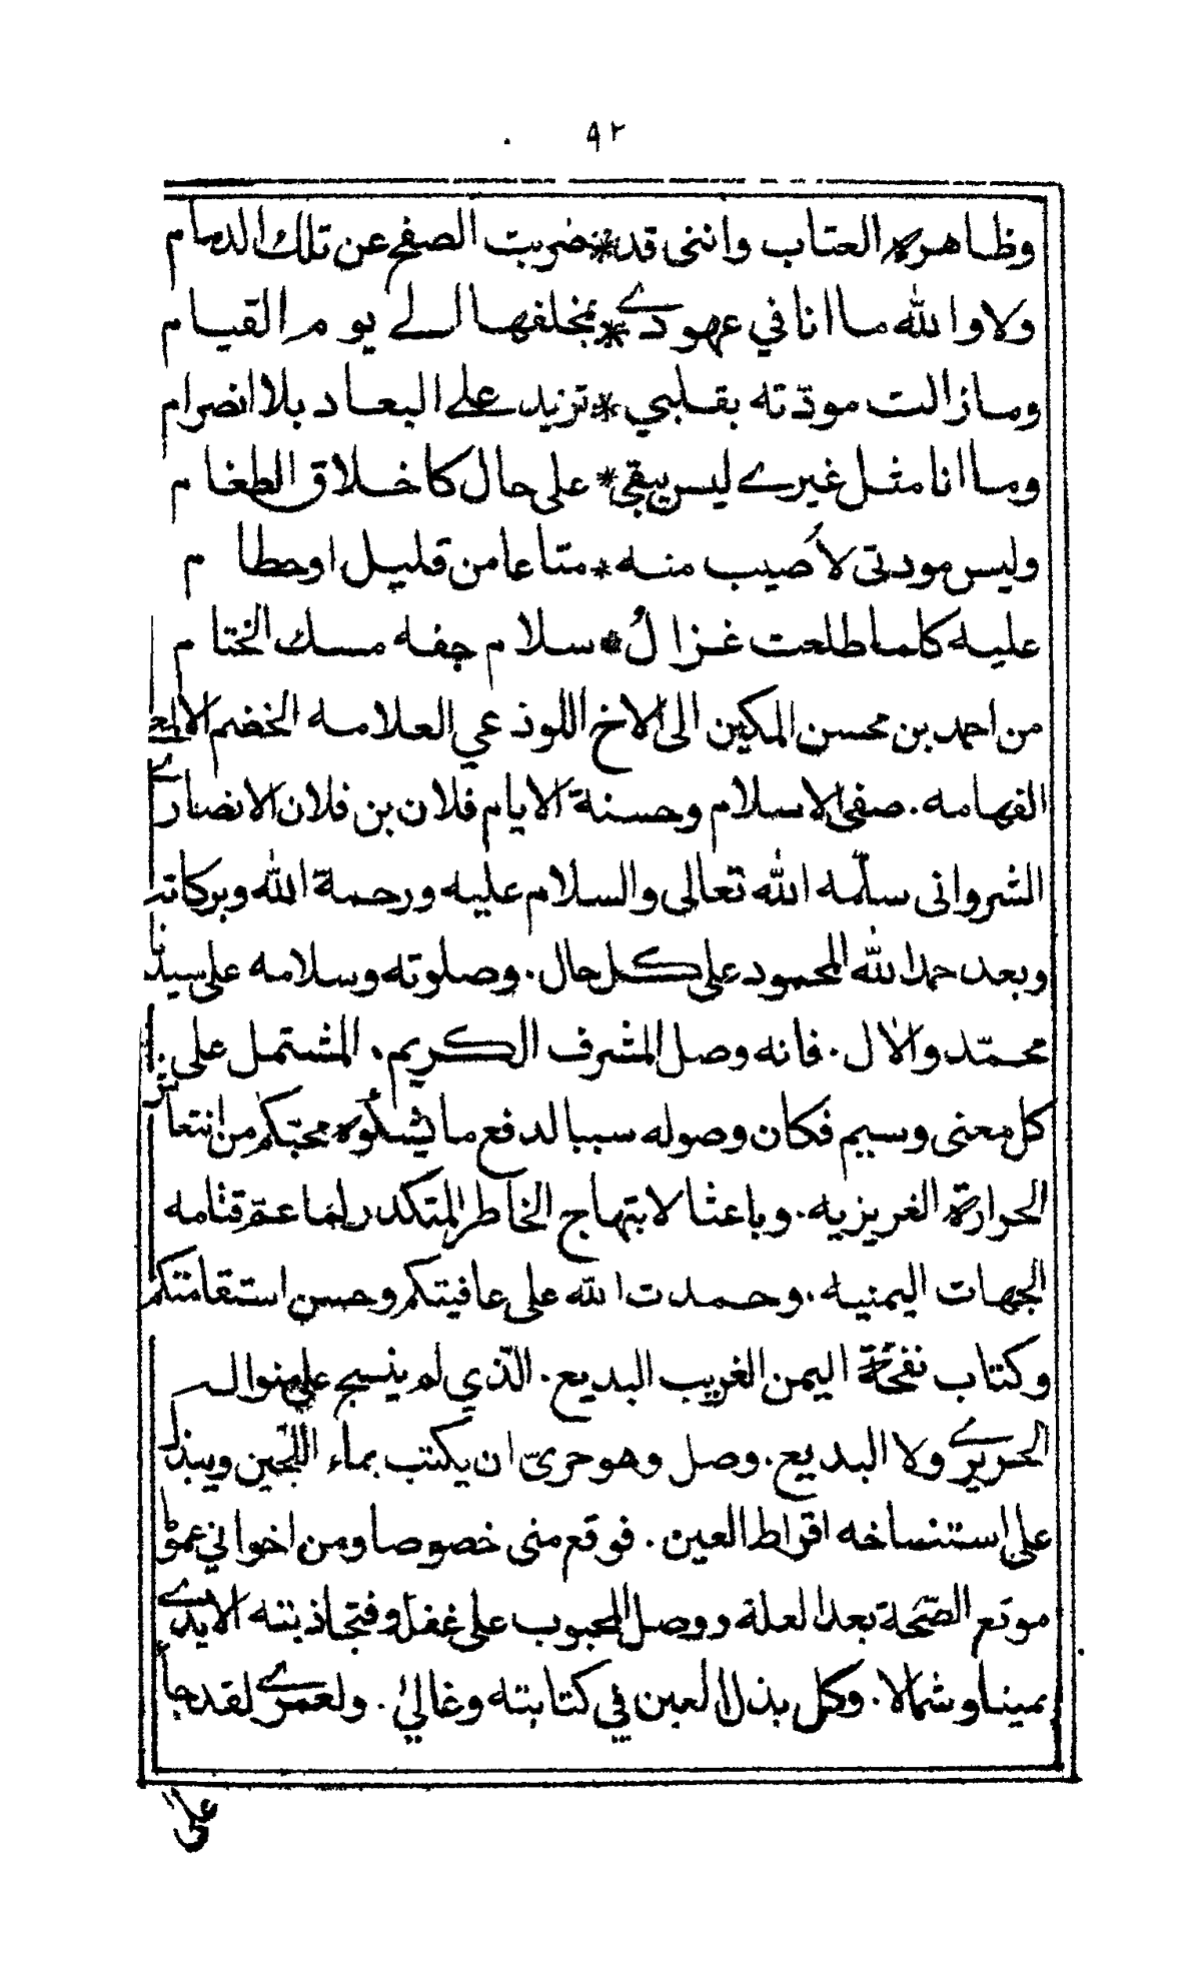 ٩٢
وظاهرة العتاب واننى قد * ضربت الصفح عن تلك الدمام
ولا والله ما انا في عهودے * بمخلفها الے يوم القيام
وما زالت مودّته بقلبي * تزيد علے البعاد بلا انصرام
وما انا مثل غيرے ليس يبقى * على حال كاخلاق الطغام
وليس مودتى لأصيب منه * متاعا من قليل او حطام
عليه كلما طلعت غزالُ * سلام جفه مسك الختام
من احمد بن محسن المكين الى الاخ اللوذعي العلامه الخضم الالمعے
الفهامه . صفى الاسلام وحسنة الايام فلان بن فلان الانصارے
الشروانى سلّمه الله تعالى والسلام عليه ورحمة الله وبركاته
وبعد حمد الله المحمود على كل حال . وصلوته وسلامه على سيدنا
محمّد والآل . فانه وصل المشرف الكريم . المشتمل على
كل معنى وسيم فكان وصوله سببا لدفع ما يشكُوه محبّكم من انتعاش
الحرارة الغريزيه . وباعثا لابتهاج الخاطر المتكدر لما عمّ قتامه
الجهات اليمنيه . وحمدت الله على عافيتكم وحسن استقامتكم
وكتاب نفحة اليمن الغريب البديع . الّذي لم ينسج على منواله
الحريرے ولا البديع . وصل وهو حرىّ ان يكتب بماء اللّجين ويبذل
على استنساخه اقراط العين . فوقع منى خصوصا ومن اخواني عموما
موقع الصّحة بعد العلة ووصل المحبوب على غفلة فتجاذبته الايدے
يمينا وشمالا . وكل بذل العين في كتابته وغالىٰ . ولعمرے لقد جاء
علىٰ